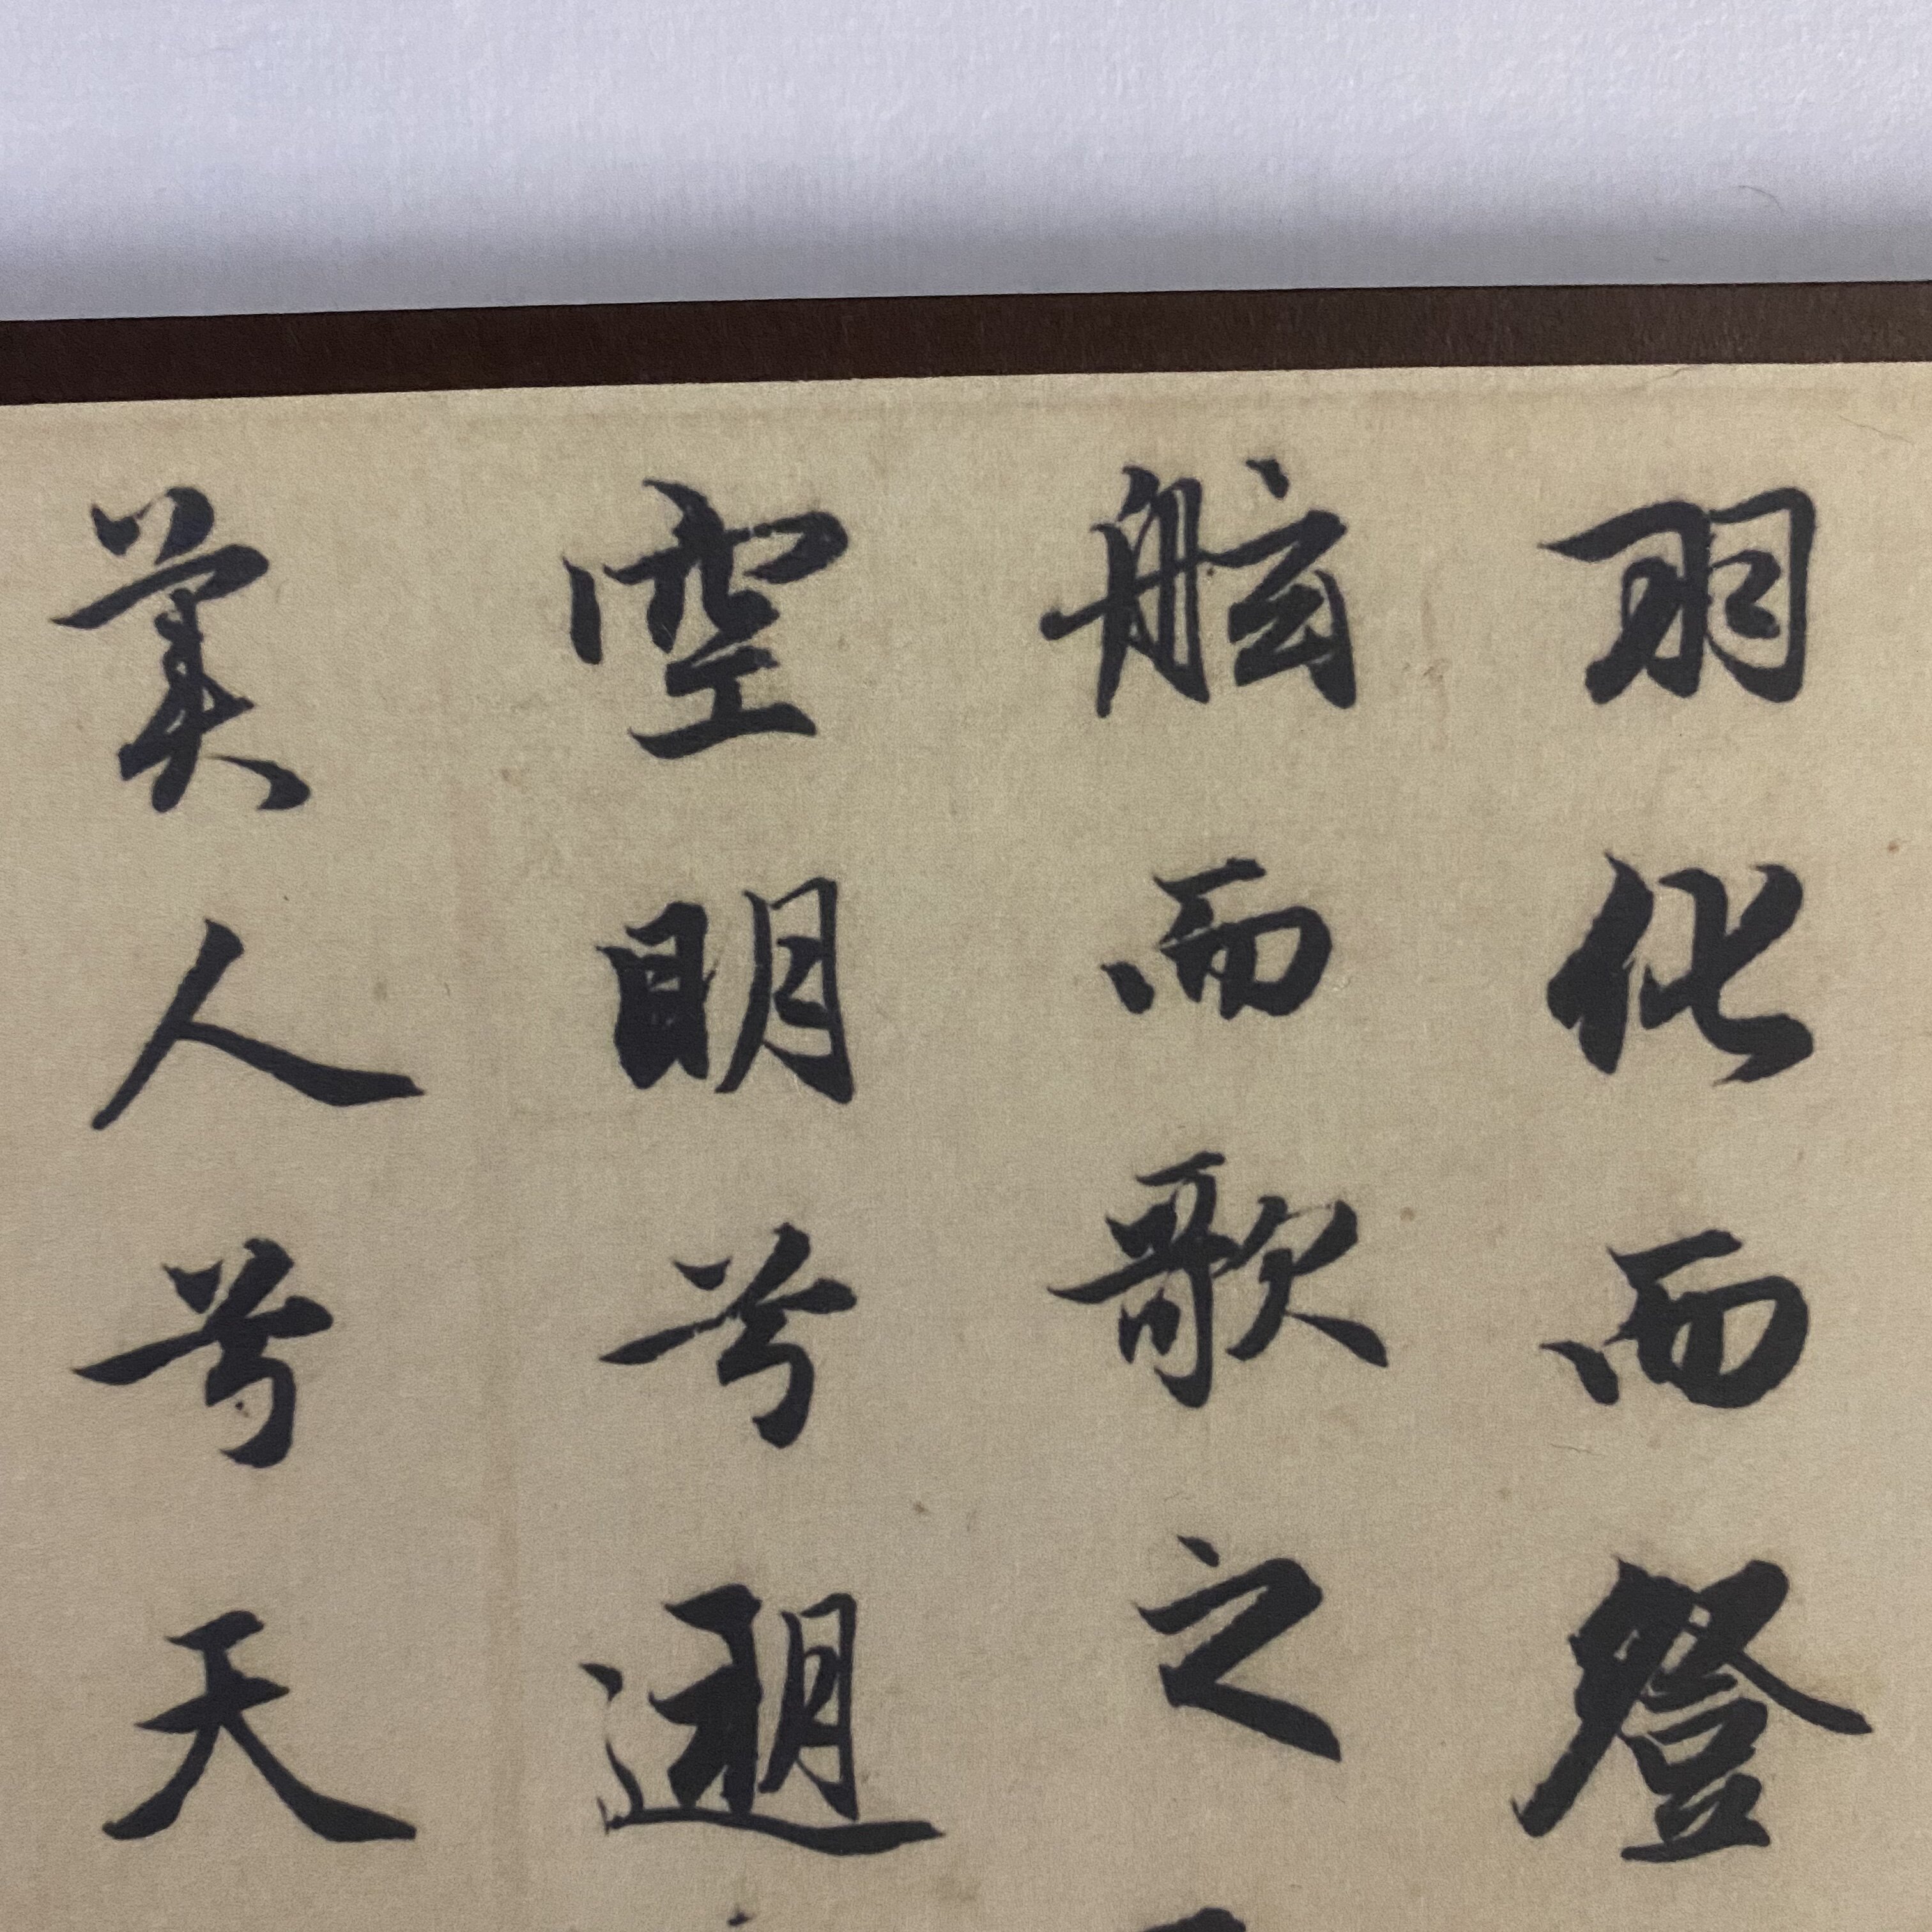 羽化而登
舷而歌之
空明兮遡
美人兮天